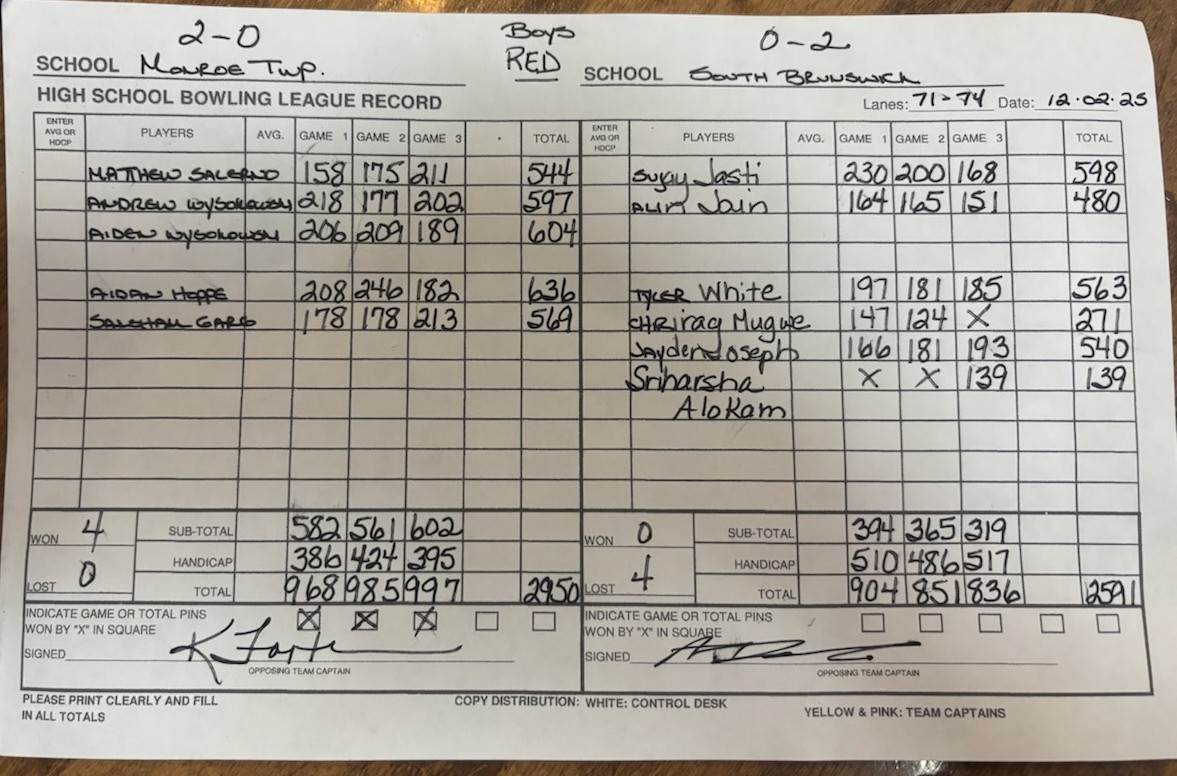 2-0 Boys 0-2
SCHOOL MONROE TWP. RED SCHOOL SOUTH BRUNSWICK
HIGH SCHOOL BOWLING LEAGUE RECORD Lanes: 71-74 Date: 12.02.25
ENTER AVG OR HDCP PLAYERS AVG. GAME 1 GAME 2 GAME 3 TOTAL ENTER AVG OR HDCP PLAYERS AVG. GAME 1 GAME 2 GAME 3 TOTAL
MATTHEW SALERNO 158 175 211 544 Sujay Jasti 230 200 168 598
ANDREW 218 177 202 597 Jain 164 165 151 480
AIDEN 206 209 189 604
AIDAN HOPPE 208 246 182 636 TYLER White 197 181 185 563
GARG 178 178 213 569 Mugwe 147 124 X 271
Jayden Joseph 166 181 193 540
Sriharsha X X 139 139
Alokam
WON 4 SUB-TOTAL 582 561 602 WON 0 SUB-TOTAL 394 365 319
HANDICAP 386 424 395 HANDICAP 510 486 517
LOST 0 TOTAL 968 985 997 2950 LOST 4 TOTAL 904 851 836 2591
INDICATE GAME OR TOTAL PINS INDICATE GAME OR TOTAL PINS
WON BY "X" IN SQUARE X X X WON BY "X" IN SQUARE
SIGNED SIGNED
OPPOSING TEAM CAPTAIN OPPOSING TEAM CAPTAIN
PLEASE PRINT CLEARLY AND FILL COPY DISTRIBUTION: WHITE: CONTROL DESK YELLOW & PINK: TEAM CAPTAINS
IN ALL TOTALS